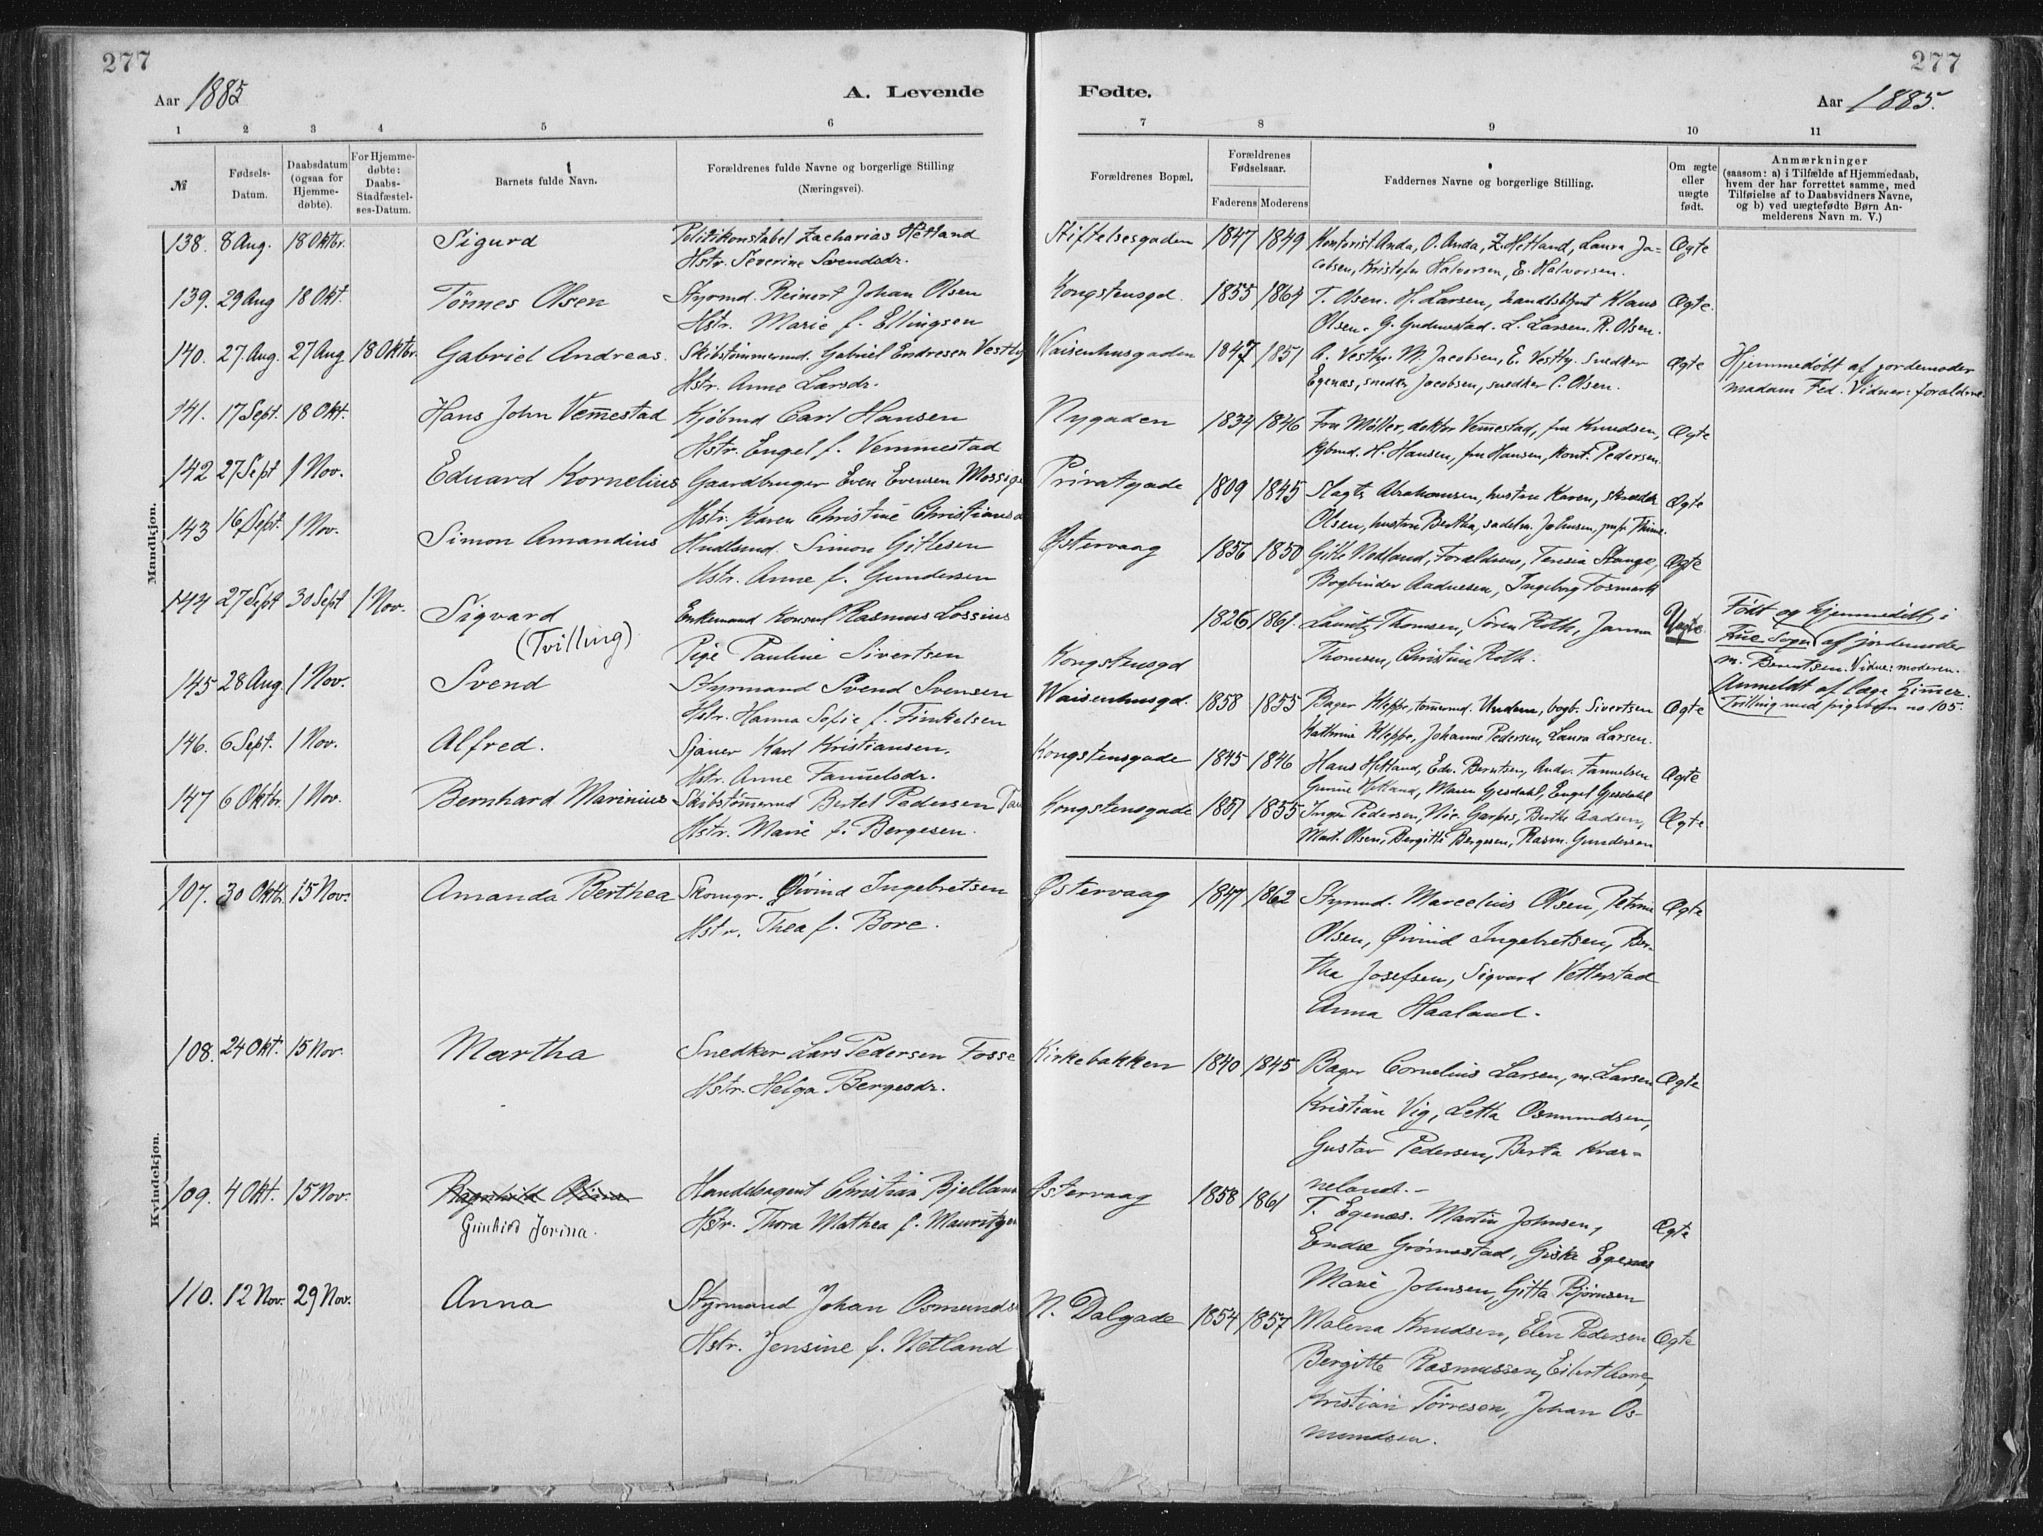 277
277
Aar 1885
A. Levende
Fødte.
Aar 1885.
1 2 3 4 5 6 7 8 9 10 11
№
Fødsels-Datum.
Daabsdatum (ogsaa for Hjemme-døbte).
For Hjemme-døbte: Daabs-Stadfæstel-ses-Datum.
Barnets fulde Navn.
Forældrenes fulde Navne og borgerlige Stilling (Næringsvei).
Forældrenes Bopæl.
Forældrenes Fødselsaar.
Faderens Moderens
Faddernes Navne og borgerlige Stilling.
Om ægte eller uægte født.
Anmærkninger (saasom: a) i Tilfælde af Hjemmedaab, hvem der har forrettet samme, med Tilføielse af to Daabsvidners Navne, og b) ved uægtefødte Børn An-melderens Navn m. V.)
Mandkjøn.
138. 8 Aug. 18 Oktbr. Sigurd Politikonstabel Zacharias Hetland Stiftelsesgaden 1847 1849 Kontorist Anda, O. Anda, Z. Hetland, Laura Ja- Ægte
Hstr. Severine Svendsdr. cobsen, Kristofer Halvorsen, E. Halvorsen.
139. 29 Aug 18 Okt. Tönnes Olsen Styrmd. Reinert Johan Olsen Kongstensgd. 1855 1864 T. Olsen. H. Larsen, Klaus Ægte.
Hstr. Marie f. Ellingsen Olsen. G. L. Larsen. R. Olsen.
140. 27. Aug. 27 Aug. 18 Oktbr. Gabriel Andreas. Skibstömmermd. Gabriel Endresen Vestby Waisenhusgaden 1847 1851 A. Vestby. M. Jacobsen, E. Vestby. snedker Ægte Hjemmedöbt af jordemoder
Hstr. Anne Larsdr. Egenæs, snedk. Jacobsen, snedker C. Olsen. madam Fed. Vidner: forældrene.
141. 17 Sept. 18 Okt. Hans John Vem̄estad Kjöbmd Carl Hansen Nygaden 1834 1846 Fru Möller, doktor Vem̄estad, fru Knudsen, Ægte
Hstr. Engel f. Vemmestad kjöbmd. H. Hansen, fru Hansen, kont. Pedersen.
142 27 Sept 1 Nov. Eduard Kornelius Gaardbruger Even Evensen Mossige Privatgade 1809 1845 Slagt. Abrahamsen, hustru Karen, Ægte
Hstr. Karen Christine Olsen, hustru Bertha, sadelm. Johnsen,
143 16 Sept. 1 Nov. Simon Amandius Simon Gitlesen Østervaag 1856 1850 Gitle Nedland, Forældrene, Teresia Stange, Ægte
Hstr. Anne f. Gundersen Bogbinder Ingeborg Fosmark
144 27 Sept 30 Sept 1 Nov. Sigvard Enkemand Konsul Rasmus Lossius 1826 1861 Lauritz Thomsen, Sören Roth, Janna Uægte. Födt og hjemmedöbt i
(Tvilling) Pige Pauline Sivertsen Kongstensgd Thomsen, Christine Roth. Sogn af jordemoder
m. Berentsen. Vidne: moderen.
145 28 Aug. 1 Nov. Svend Styrmand Svend Svensen Waisenhusgd. 1858 1855 Bager Kleppe, tömmermd. Undem, bogb. Sivertsen Ægte Anmeldt af læge Zimmer.
Hstr. Hanna Sofie f. Finkelsen Kathrine Kleppe, Johanne Pedersen, Laura Larsen. Tvilling med pigebarn no 105.
146. 6 Sept. 1 Nov. Alfred. Sjauer Karl Kristiansen. Kongstensgade 1845 1846 Hans Hetland, Edv. Berntsen, Andr. Fanuelsen Ægte
Hstr. Anne Fanuelsdr. Gunine Hetland, Maren Gjesdahl, Engel Gjesdahl
147 6 Oktbr. 1 Nov. Bernhard Marinius Skibstömmermd Bertel Pedersen Kongstensgade 1851 1855 Inger Pedersen, Berthe Aadsen, Ægte
Hstr. Marie f. Bergesen. Mart. Olsen, Bergitte Bergesen, Rasm. Gundersen
Kvindekjøn.
107. 30 Oktbr. 15 Nov. Amanda Berthea Skomgr. Øivind Ingebretsen Østervaag 1847 1862 Styrmd. Marcelius Olsen, Petrine Ægte
Hstr. Thea f. Bore. Olsen, Øivind Ingebretsen, Ber-
tha Josefsen, Sigvard Vetterstad
Anna Haaland.
108. 24 Okt. 15 Nov. Martha Snedker Lars Pedersen Fosse Kirkebakken 1840 1845 Bager Cornelius Larsen, m. Larsen Ægte
Hstr. Helga Bergesdr. Kristian Vig, Letta Osmundsen,
Gustav Pedersen, Berta Kvær-
neland.-
109. 4 Okt. 15 Nov. Ragnhild Handelsagent Christian Bjelland Østervaag 1858 1861 T. Egenæs. Martin Johnsen, Ægte
Jorina. Hstr. Thora Mathea f. Mauritzen Endre Grönnestad, Giska Egenæs
Marie Johnsen, Gitta Björnsen
110. 12 Nov. 29 Nov. Anna Styrmand Johan Osmunds N. Dalgade 1854 1857 Malena Knudsen, Elen Pedersen Ægte
Hstr. Jensine f. Netland Bergitte Rasmussen,
Kristian Törresen, Johan Os-
mundsen.